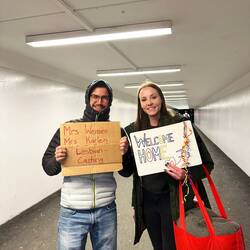 Mrs Weinsen
Mrs Karlen
Lesbian
Casting
WELCOME
HOME